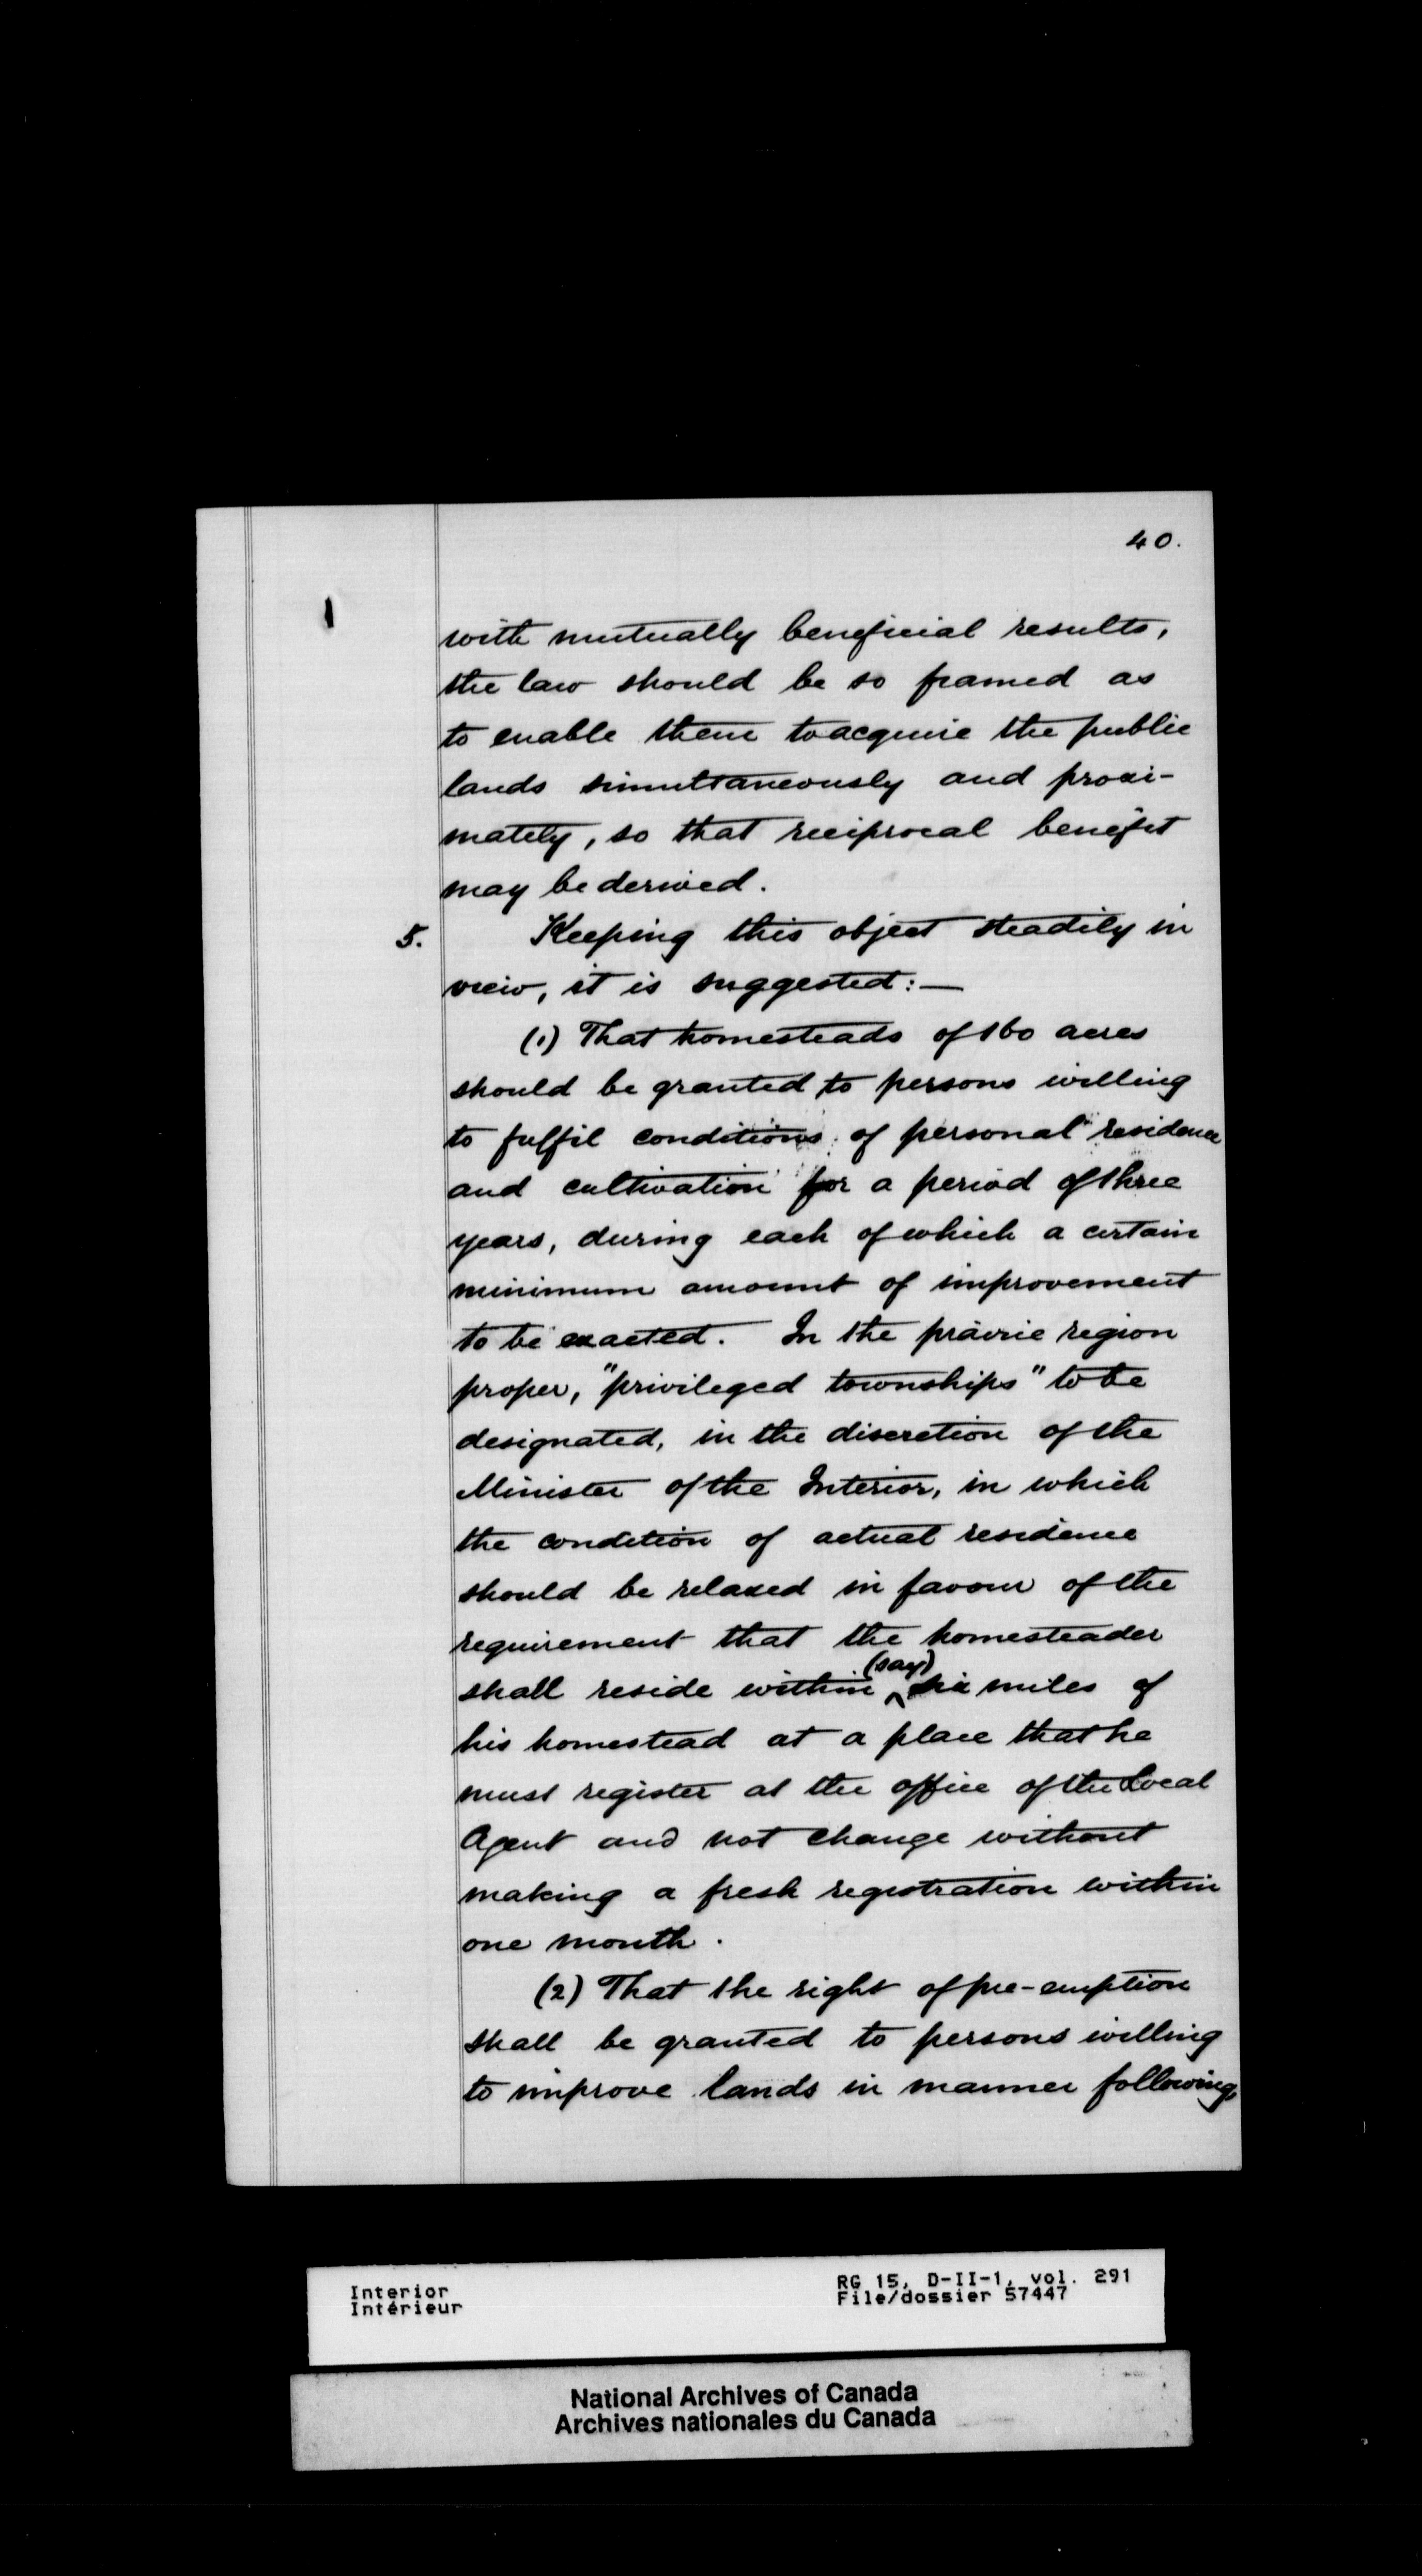 40.
with mutually beneficial results,
the law should be so framed as
to enable them to acquire the public
lands simultaneously and proxi-
mately, so that reciprocal benefit
may be derived.
5. Keeping this object steadily in
view, it is suggested:—
(1) That homesteads of 160 acres
should be granted to persons willing
to fulfil conditions of personal residence
and cultivation for a period of three
years, during each of which a certain
minimum amount of improvement
to be exacted. In the prairie region
proper, "privileged townships" to be
designated, in the discretion of the
Minister of the Interior, in which
the condition of actual residence
should be relaxed in favour of the
requirement that the homesteader
shall reside within (say) six miles of
his homestead at a place that he
must register at the office of the Local
Agent and not change without
making a fresh registration within
one month.
(2) That the right of pre-emption
shall be granted to persons willing
to improve lands in manner following,
Interior
Intérieur
RG 15, D-II-1, vol. 291
File/dossier 57447
National Archives of Canada
Archives nationales du Canada